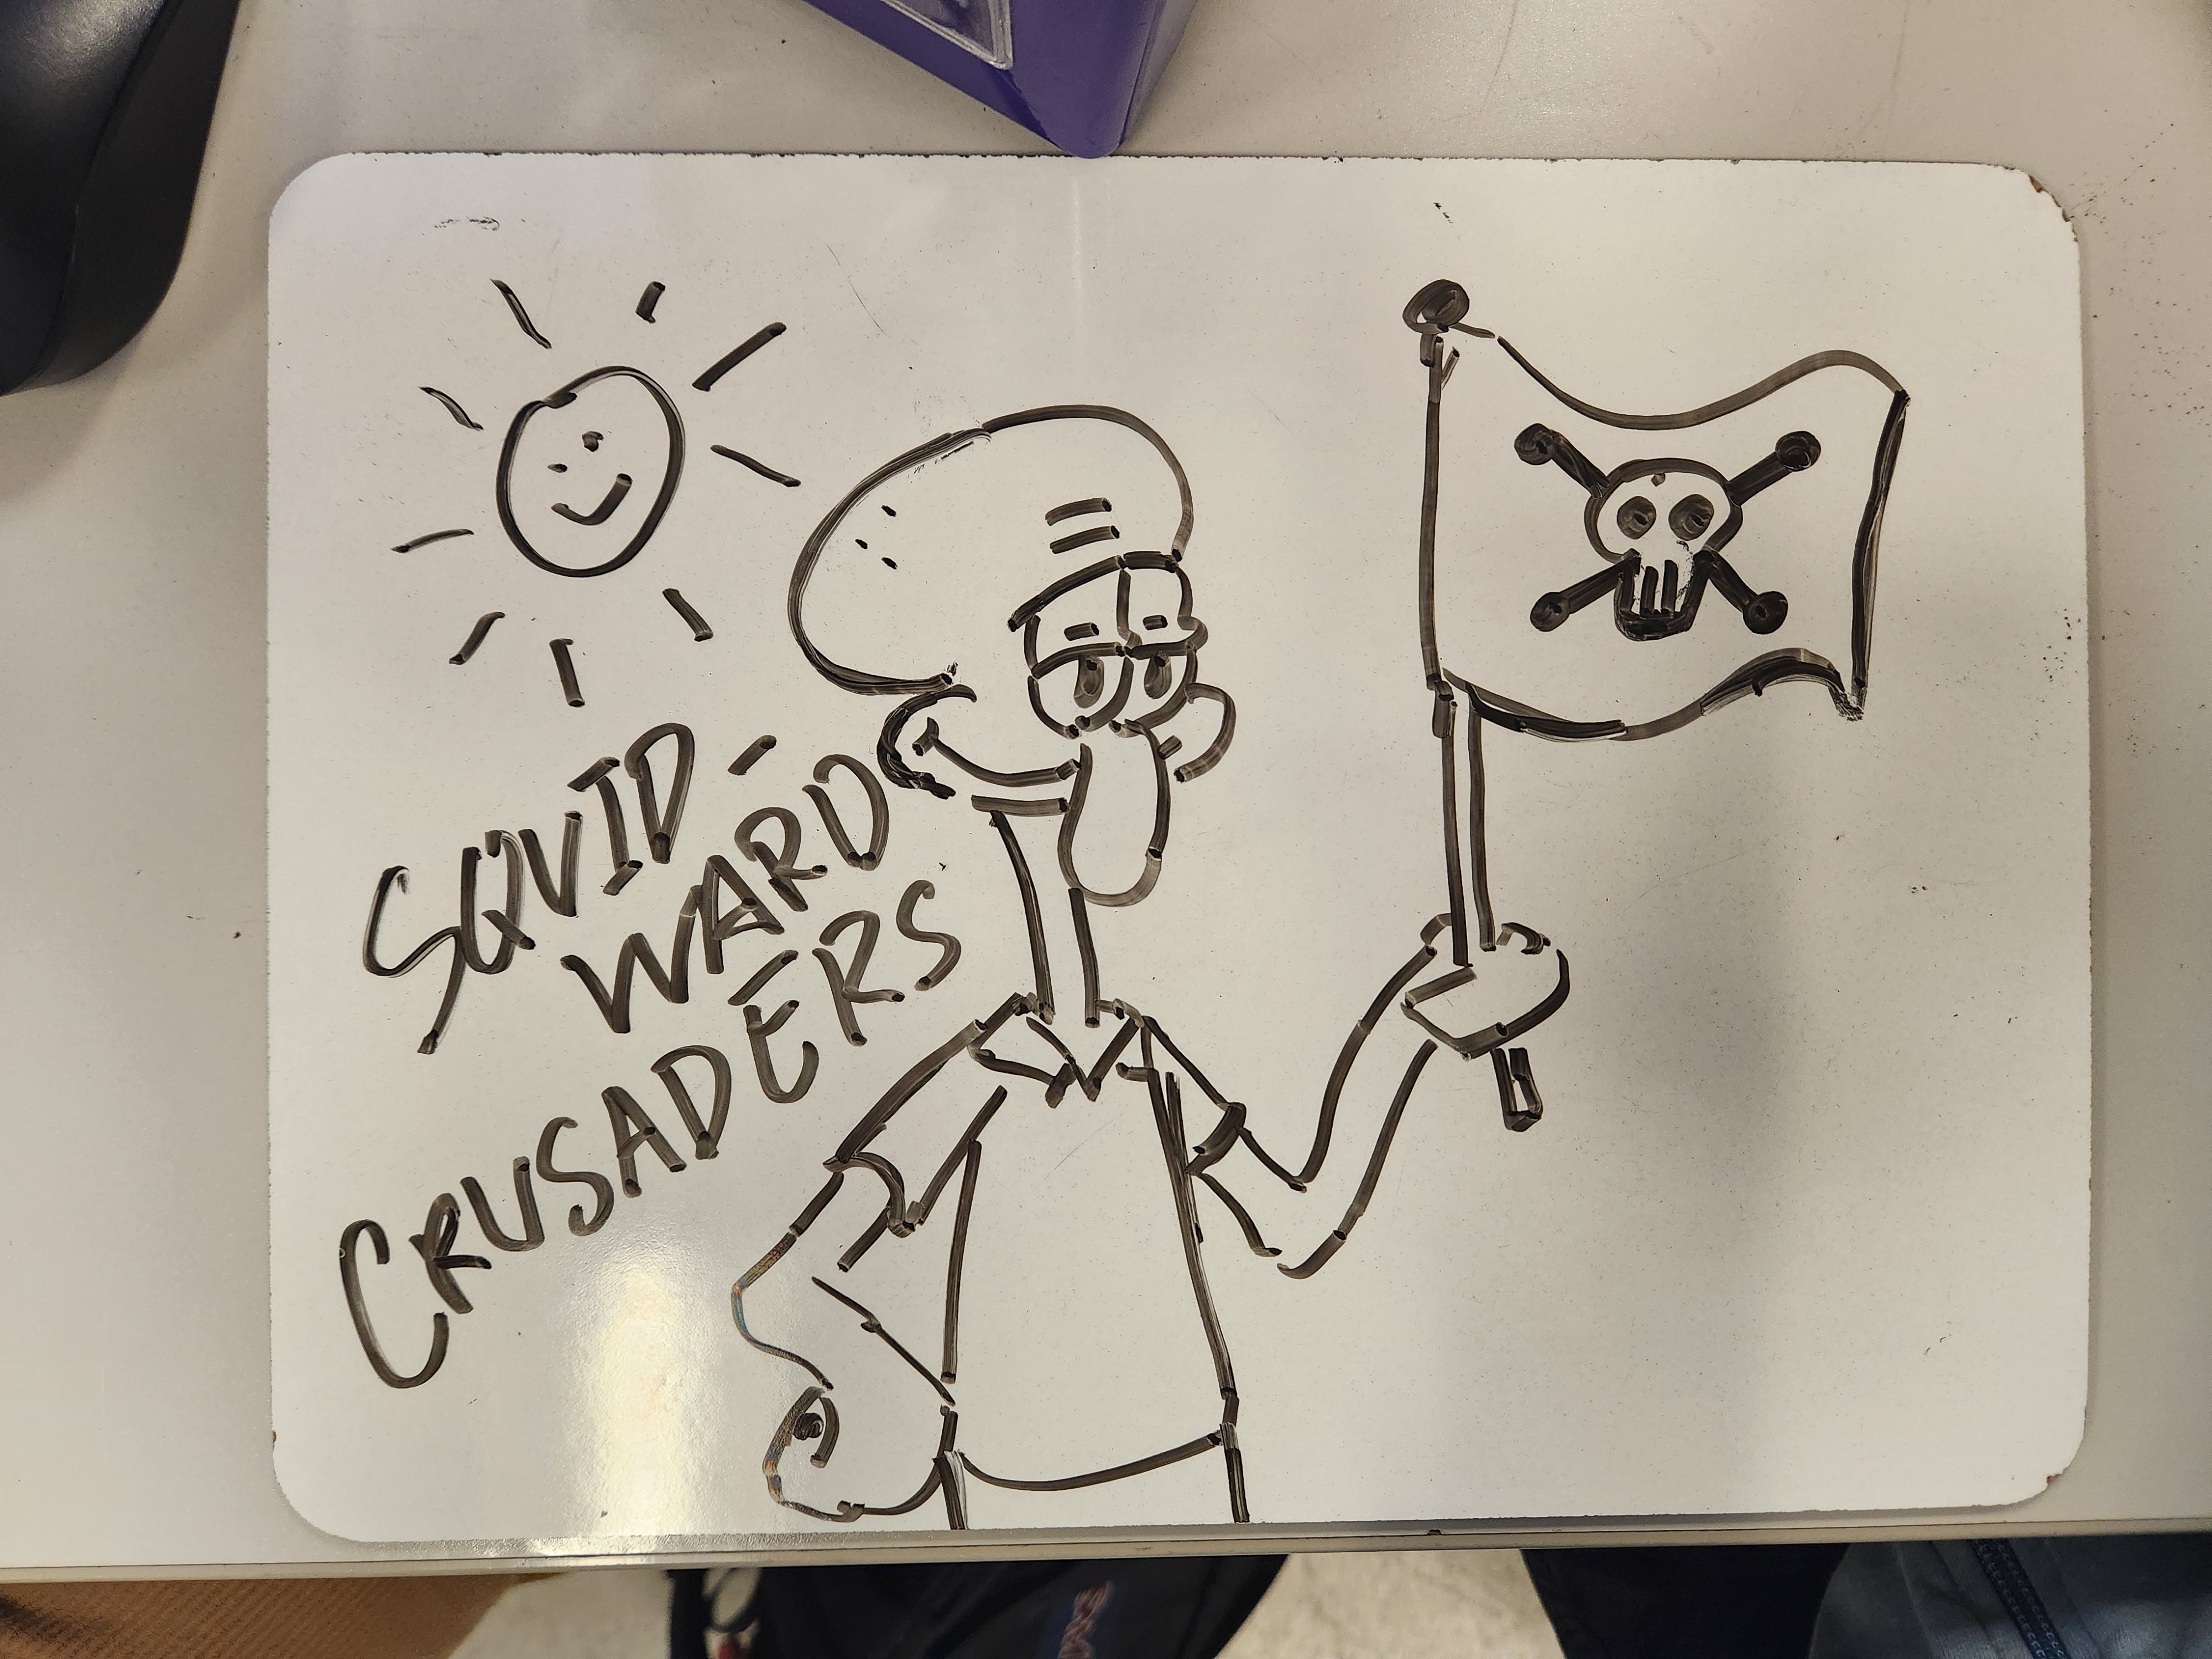 SQUID-
WARD
CRUSADERS